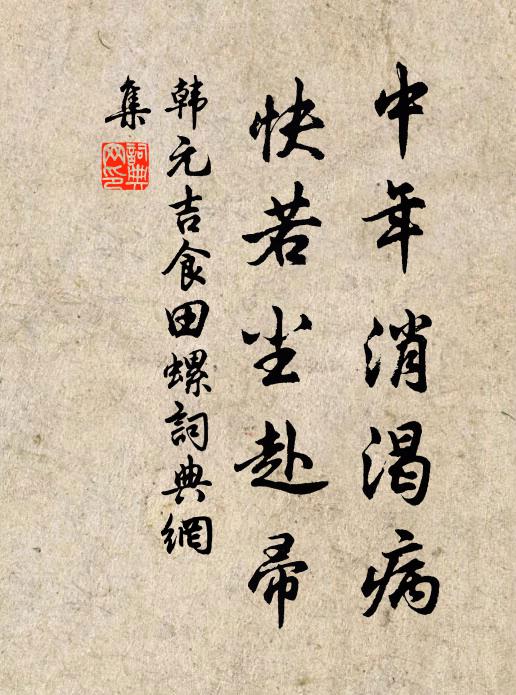 中年消渴病
快若尘赴帚
韩元吉食田螺詞典網
集
詞典網印